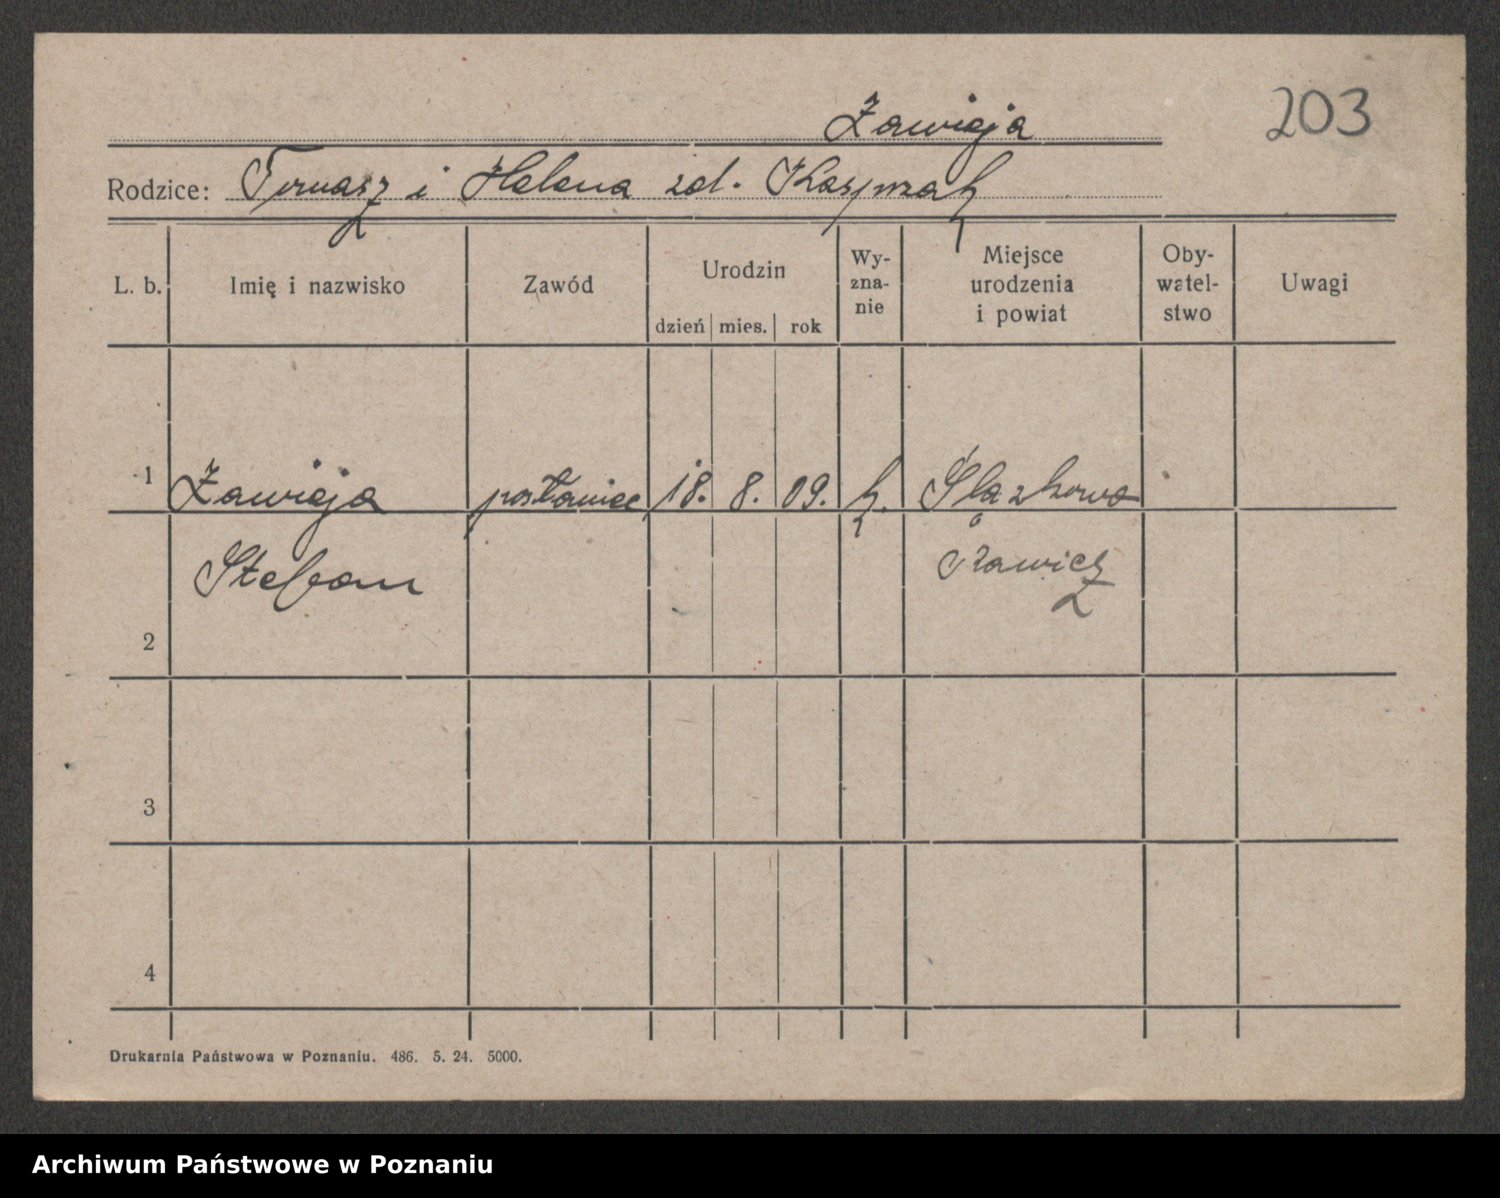 203
Zawieja
Rodzice: Tomasz i Helena zd. Kasprzak
L. b. Imię i nazwisko Zawód Urodzin dzień mies. rok Wyznanie Miejsce urodzenia i powiat Obywatelstwo Uwagi
1 Zawieja posłaniec 18. 8. 09. k. Ślązkowo
Stefan Rawicz
2
3
4
Drukarnia Państwowa w Poznaniu. 486. 5. 24. 5000.
Archiwum Państwowe w Poznaniu